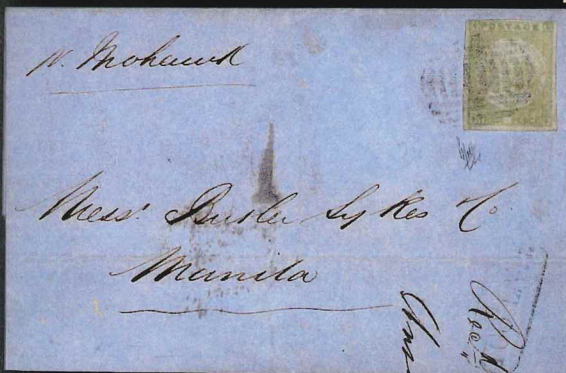 POSTAGE
pr. Mohawk
Messrs. Butler Sykes Co
Manila
Recd
Ans